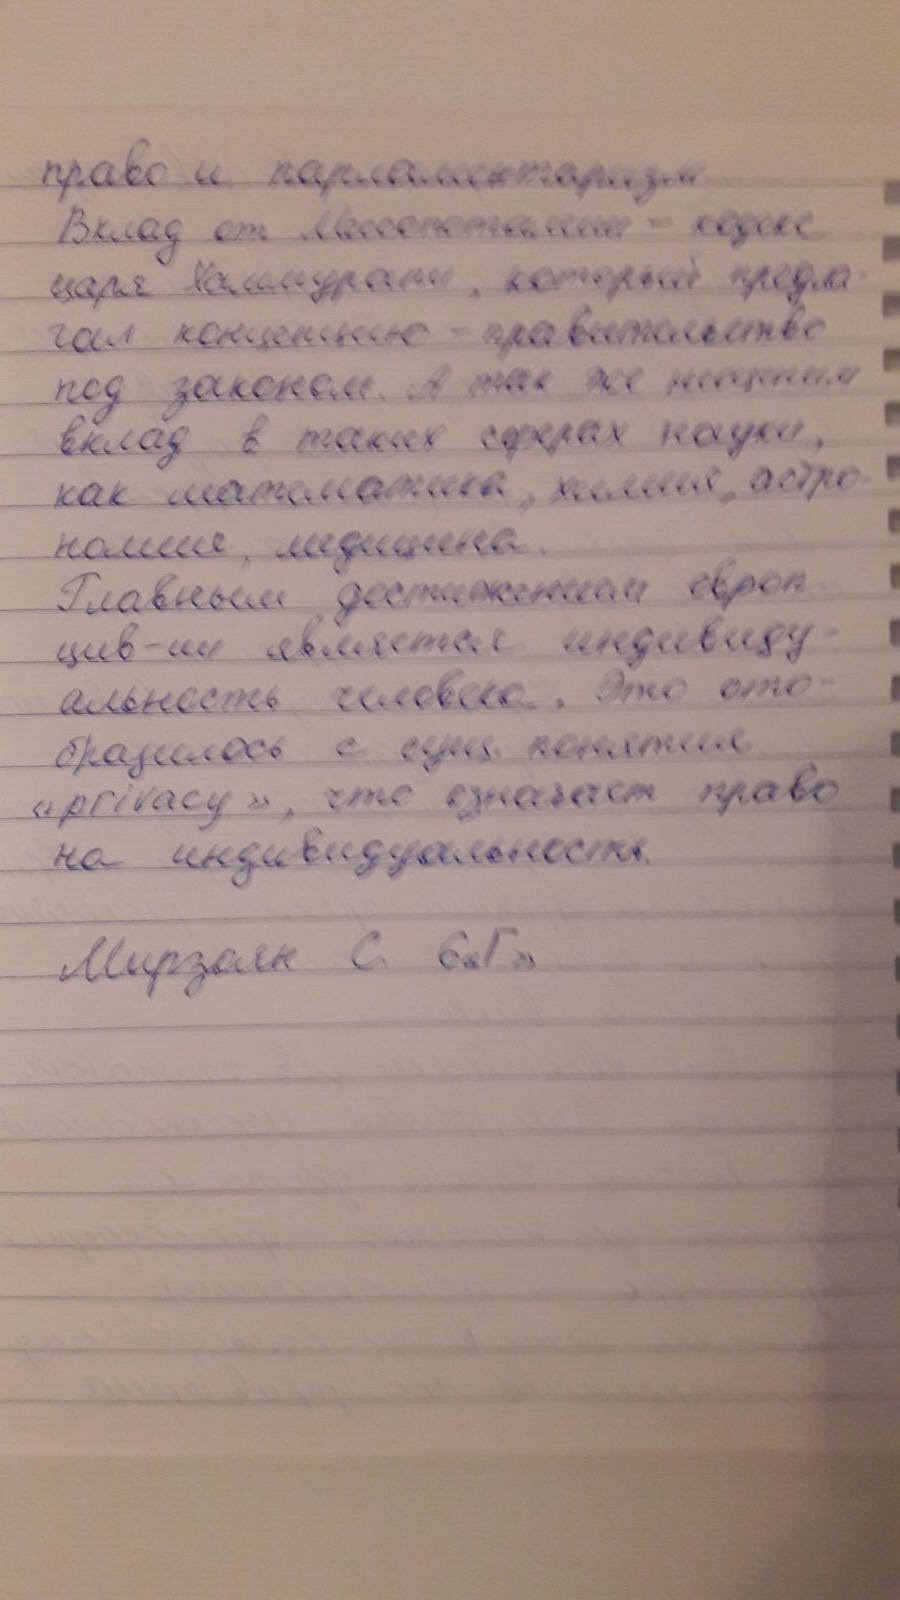 право и парламентаризм.
Вклад от Мессопотамии - кодекс
царя Хаммурапи, который предла-
гал концепцию - правительство
под законом. А так же
вклад в таких сферах науки,
как математика, химия, астро-
номия, медицина.
Главным достижением европ.
цив-ии является индивиду-
альность человека. Это ото-
бразилось с сущ. понятия
«privacy», что означает право
на индивидуальность.
Мирзоян С. 6«Г»